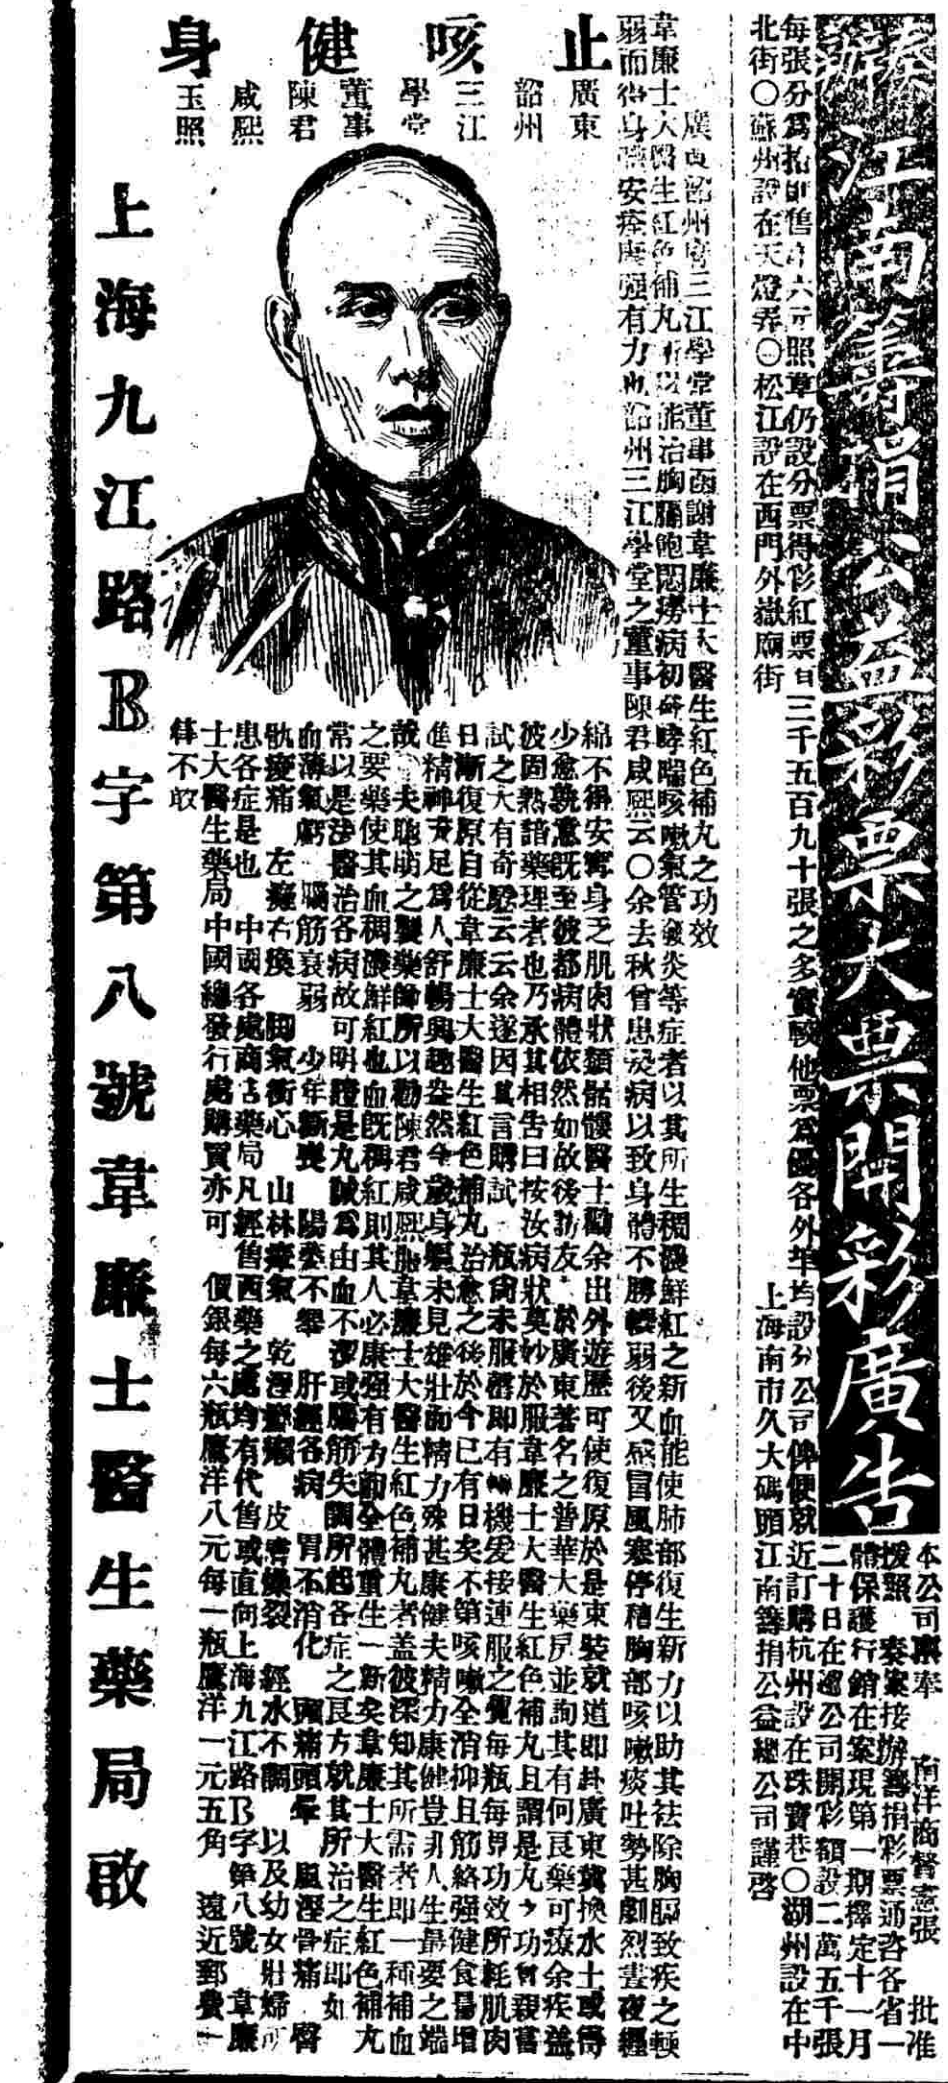 奏辦江南籌捐公益彩票大票開彩廣告
本公司稟奉 南洋商督憲張 批准
援照 奏案接辦籌捐彩票通咨各省一
體保護行銷在案現第一期擇定十一月
二十日在總公司開彩額設二萬五千張
每張分為拾即售六元照章仍設分票得彩紅票三千五百九十張之多實較他票為優各外埠均設分公司俾便就近訂購杭州設在珠寶巷〇湖州設在中
北街〇蘇州設在天燈弄〇松江設在西門外嶽廟街 上海南市久大碼頭江南籌捐公益總公司謹啓
止咳健身
廣東
韶州
三江
學堂
董事
陳君
咸熙
玉照
廣東韶州府三江學堂董事函謝韋廉士大醫生紅色補丸之功效
韋廉士大醫生紅色補丸所以能治胸膈飽悶癆病初起哮喘咳嗽氣管發炎等症者以其所生稠濃鮮紅之新血能使肺部復生新力以助其祛除胸膈致疾之
弱而得身強安痊康强有力也韶州三江學堂之董事陳君咸熙云〇余去秋曾患沒病以致身體不勝軟弱後又感冒風寒停積胸部咳嗽痰吐勢甚劇烈晝夜纏
綿不得安寗身乏肌肉狀類骷髏醫士勸余出外遊歷可使復原於是束裝就道即赴廣東冀換水士或得
少愈孰意既至彼都病體依然如故後訪友於廣東著名之普華大藥房並詢其有何良藥可療余疾蓋
彼固熟諳藥理者也乃承其相告曰按汝病狀莫妙於服韋廉士大醫生紅色補丸且謂是丸之功曾親嘗
試之大有奇驗云云余遂因其言購試一瓶尚未服罄即有轉機爰接連服之覺每瓶每昇功效所耗肌肉
日漸復原自從韋廉士大醫生紅色補丸治愈之後於今已有日矣不第咳嗽全消抑且筋絡强健食量增
進精神充足為人舒暢興趣盎然今歲身軀未見雄壯而精力殊甚康健夫精力康健豈非人生最要之端
哉夫聰明之製藥師所以勸陳君咸熙服韋廉士大醫生紅色補丸者蓋彼深知其所需者即一種補血
之要藥使其血稠濃鮮紅也血既稠紅則其人必康强有力而全體重生一新矣韋廉士大醫生紅色補丸
常以是法醫治各病故可明證是丸誠為由血不潔或腦筋失調所起各症之良方就其所治之症即如
血薄氣虧 腦筋衰弱 少年斲喪 陽萎不舉 肝經各病 胃不消化 頭痛頭暈 風溼骨痛 臀
骩痠痛 左癱右瘓 脚氣衝心 山林瘴氣 乾溼癬癩 皮膚燥裂 經水不調 以及幼女壯婦所
患各症是也 中國各處商店藥局凡經售西藥之處均有代售或直向上海九江路B字第八號 韋廉
士大醫生藥局中國總發行處購買亦可 價銀每六瓶鷹洋八元每一瓶鷹洋一元五角 遠近郵費一
律不取
上海九江路B字第八號韋廉士醫生藥局啟